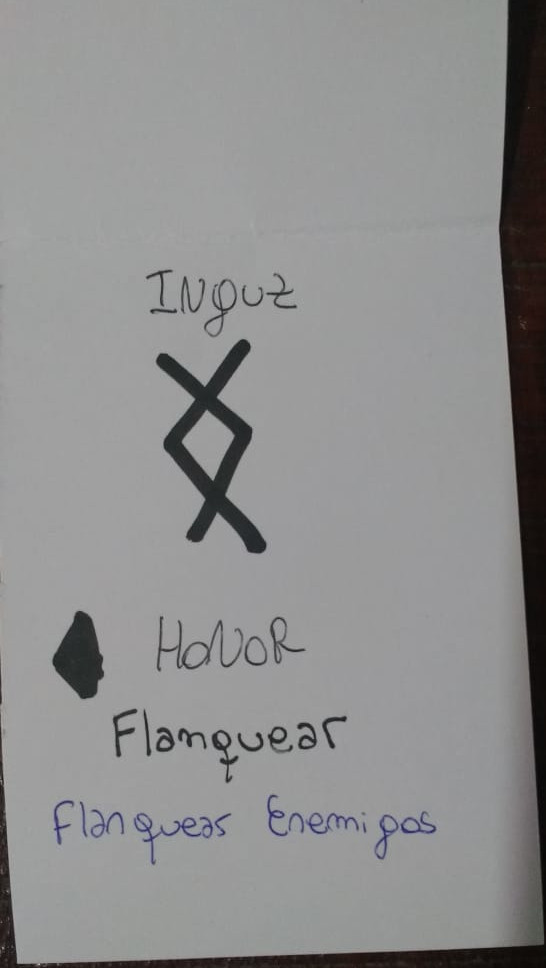 INguz
HoNoR
Flanquear
Flanquear Enemigos